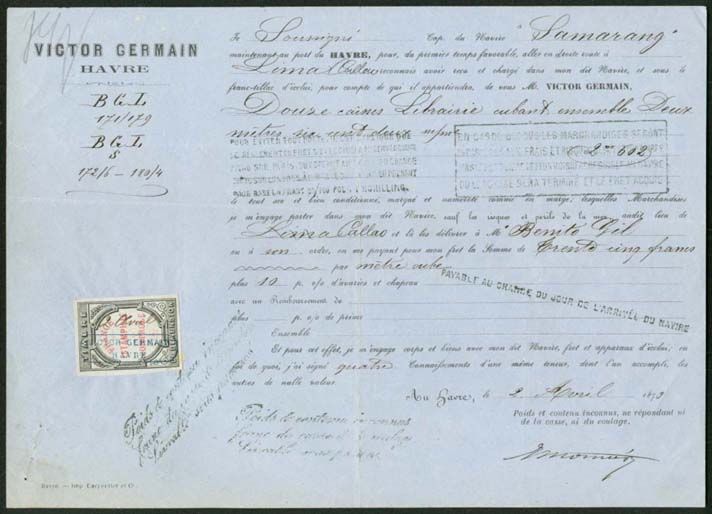 VICTOR GERMAIN
HAVRE
B G L
171/179
B G L
S
172/6 - 180/4
Je Soussigné Cap. du Navire "Samarang"
maintenant au port du HAVRE, pour, du premier temps favorable, aller en droite route à
Lima Callao reconnais avoir reçu et chargé dans mon dit Navire, et sous le
franc-tillac d'icelui, pour compte de qui il appartiendra, de vous M. VICTOR GERMAIN,
Douze caisses Librairie cubant ensemble Deux
mètres six cent deux
2 m 602
EN CAS DE DOUBLES MARCHANDISES SERONT
le tout sec et bien conditionné, marqué et numéroté comme en marge, lesquelles Marchandises
je m'engage porter dans mon dit Navire, sauf les risques et périls de la mer audit lieu de
Lima Callao et là les délivrer à Mr Benito Gil
ou à son ordre, en me payant pour mon fret la Somme de Trente cinq francs
par mètre cube
PAYABLE AU CHANGE DU JOUR DE L'ARRIVÉE DU NAVIRE
plus 10 p. o/o d'avaries et chapeau
avec un Remboursement de
plus p. o/o de prime
Ensemble
Et pour cet effet, je m'engage corps et biens avec mon dit Navire, fret et apparaux d'icelui, en
foi de quoi, j'ai signé quatre Connaissements d'une même teneur, dont l'un accompli, les
autres de nulle valeur.
Au Havre, le 2 Avril 1873
Poids et contenu inconnus, ne répondant ni
de la casse, ni du coulage.
VICTOR GERMAIN
HAVRE
Poids et contenu inconnus
Poids et contenu inconnus
Havre. — Imp. Carpentier et Cie.